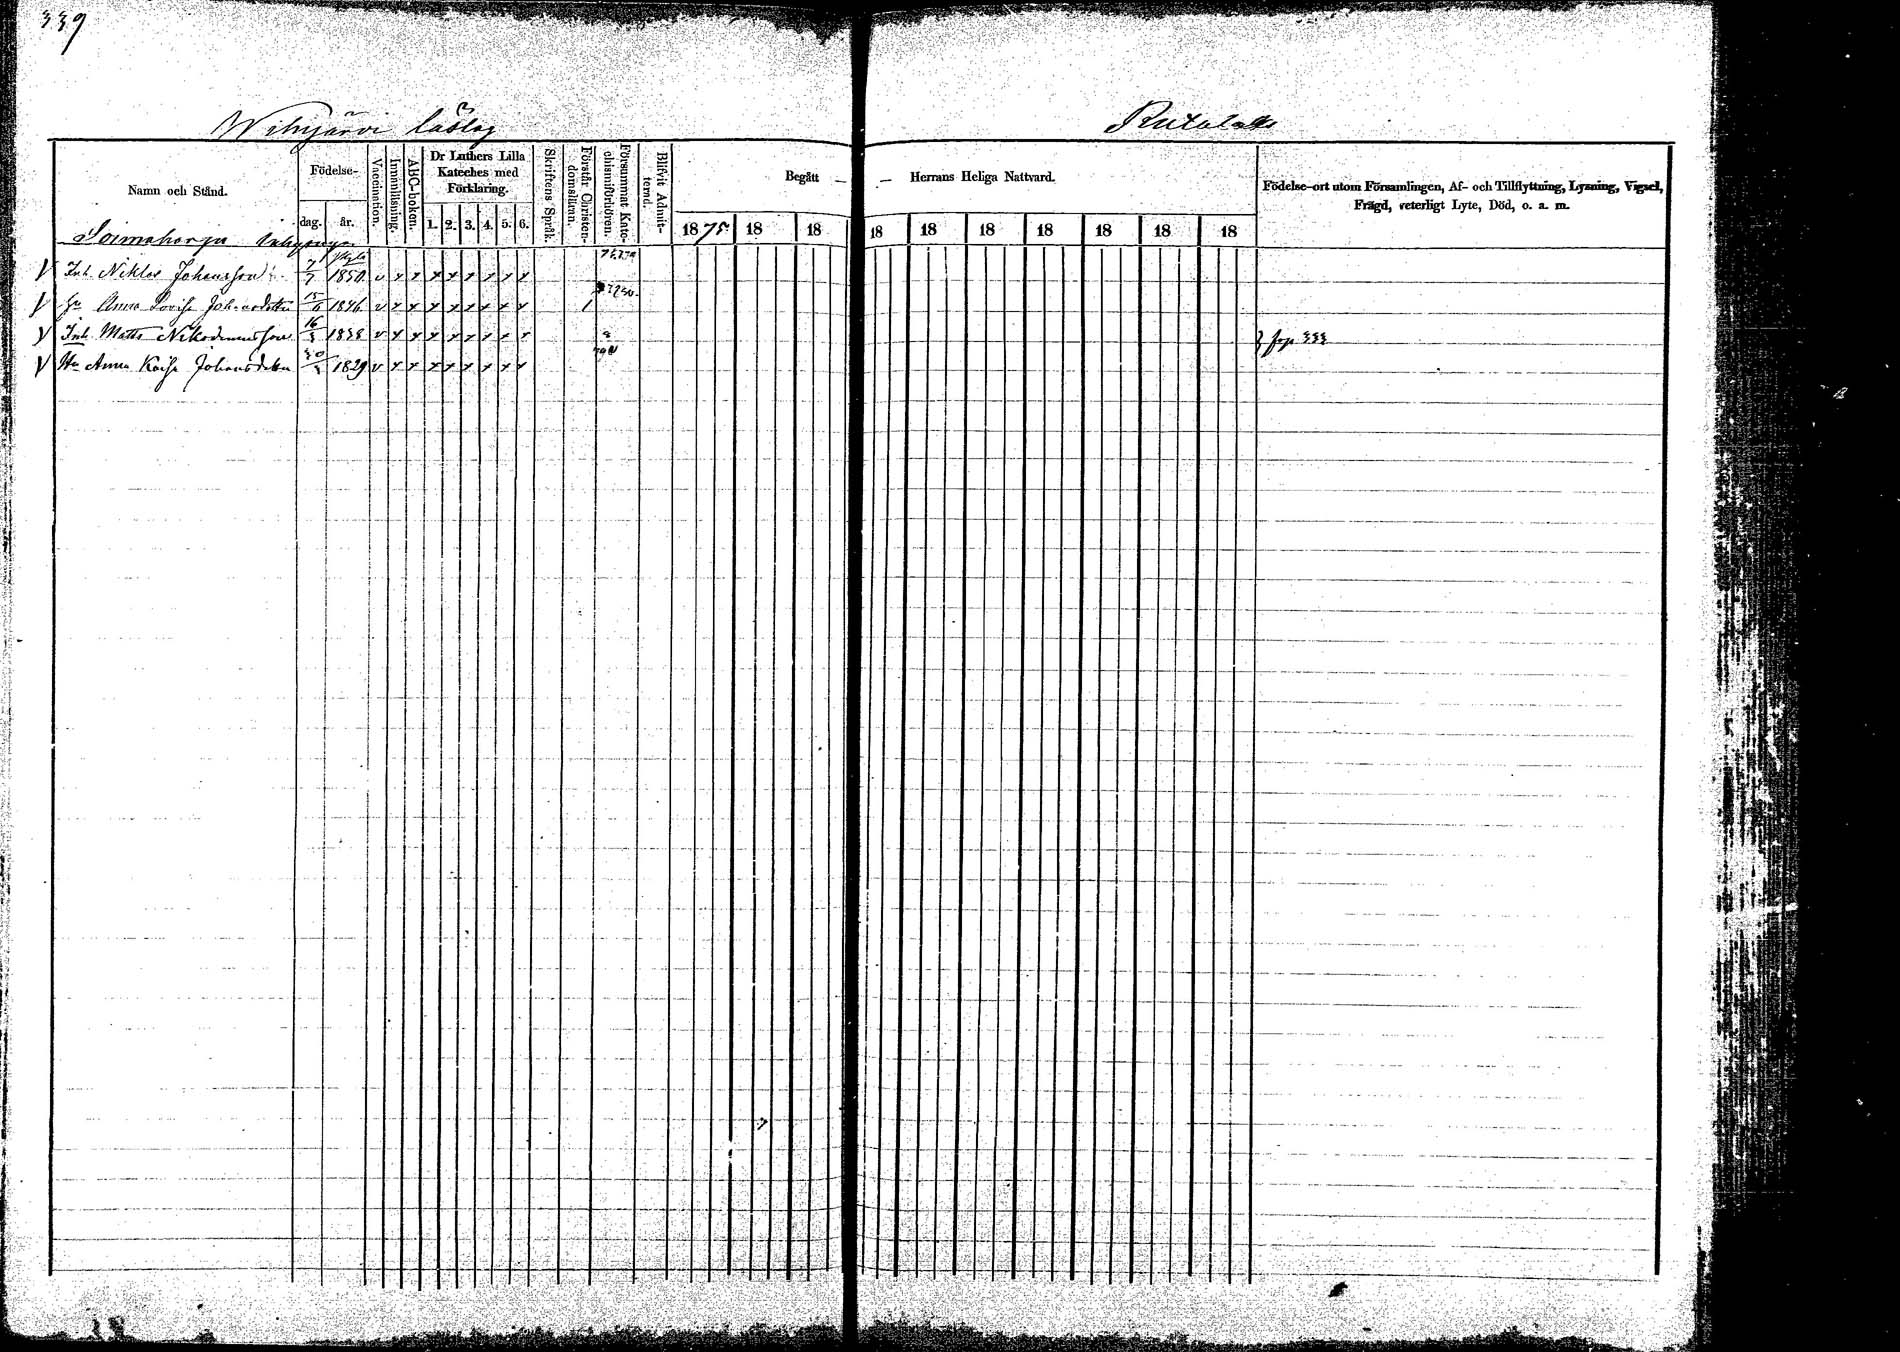 339
Wihijärvi läslag
Rutalaks
Namn och Stånd.
Födelse-
dag.
år.
Vaccination.
Innanläsning.
ABC-boken.
Dr Luthers Lilla
Kateches med
Förklaring.
1. 2. 3. 4. 5. 6.
Skriftens Språk.
Förstår Christen-
domsläran.
Försummat Kate-
chismiförhören.
Blifvit Admit-
terad.
Begått — — Herrans Heliga Nattvard.
1875 18 18 18 18 18 18 18 18 18
Födelse-ort utom Församlingen, Af- och Tillflyttning, Lysning, Vigsel,
Frägd, veterligt Lyte, Död, o. a. m.
Soimaharju
V Inh. Niklas Johansson 7/7 1850 v x x x x x x x x
V Hu Anna Lovisa Johansdotter 15/6 1846 v x x x x x x x x 1
V Inh. Matts Nikodemusson 16/3 1838 v x x x x x x x x } fr. p. 333
V Hu Anna Kaisa Johansdotter 30/3 1829 v x x x x x x x x